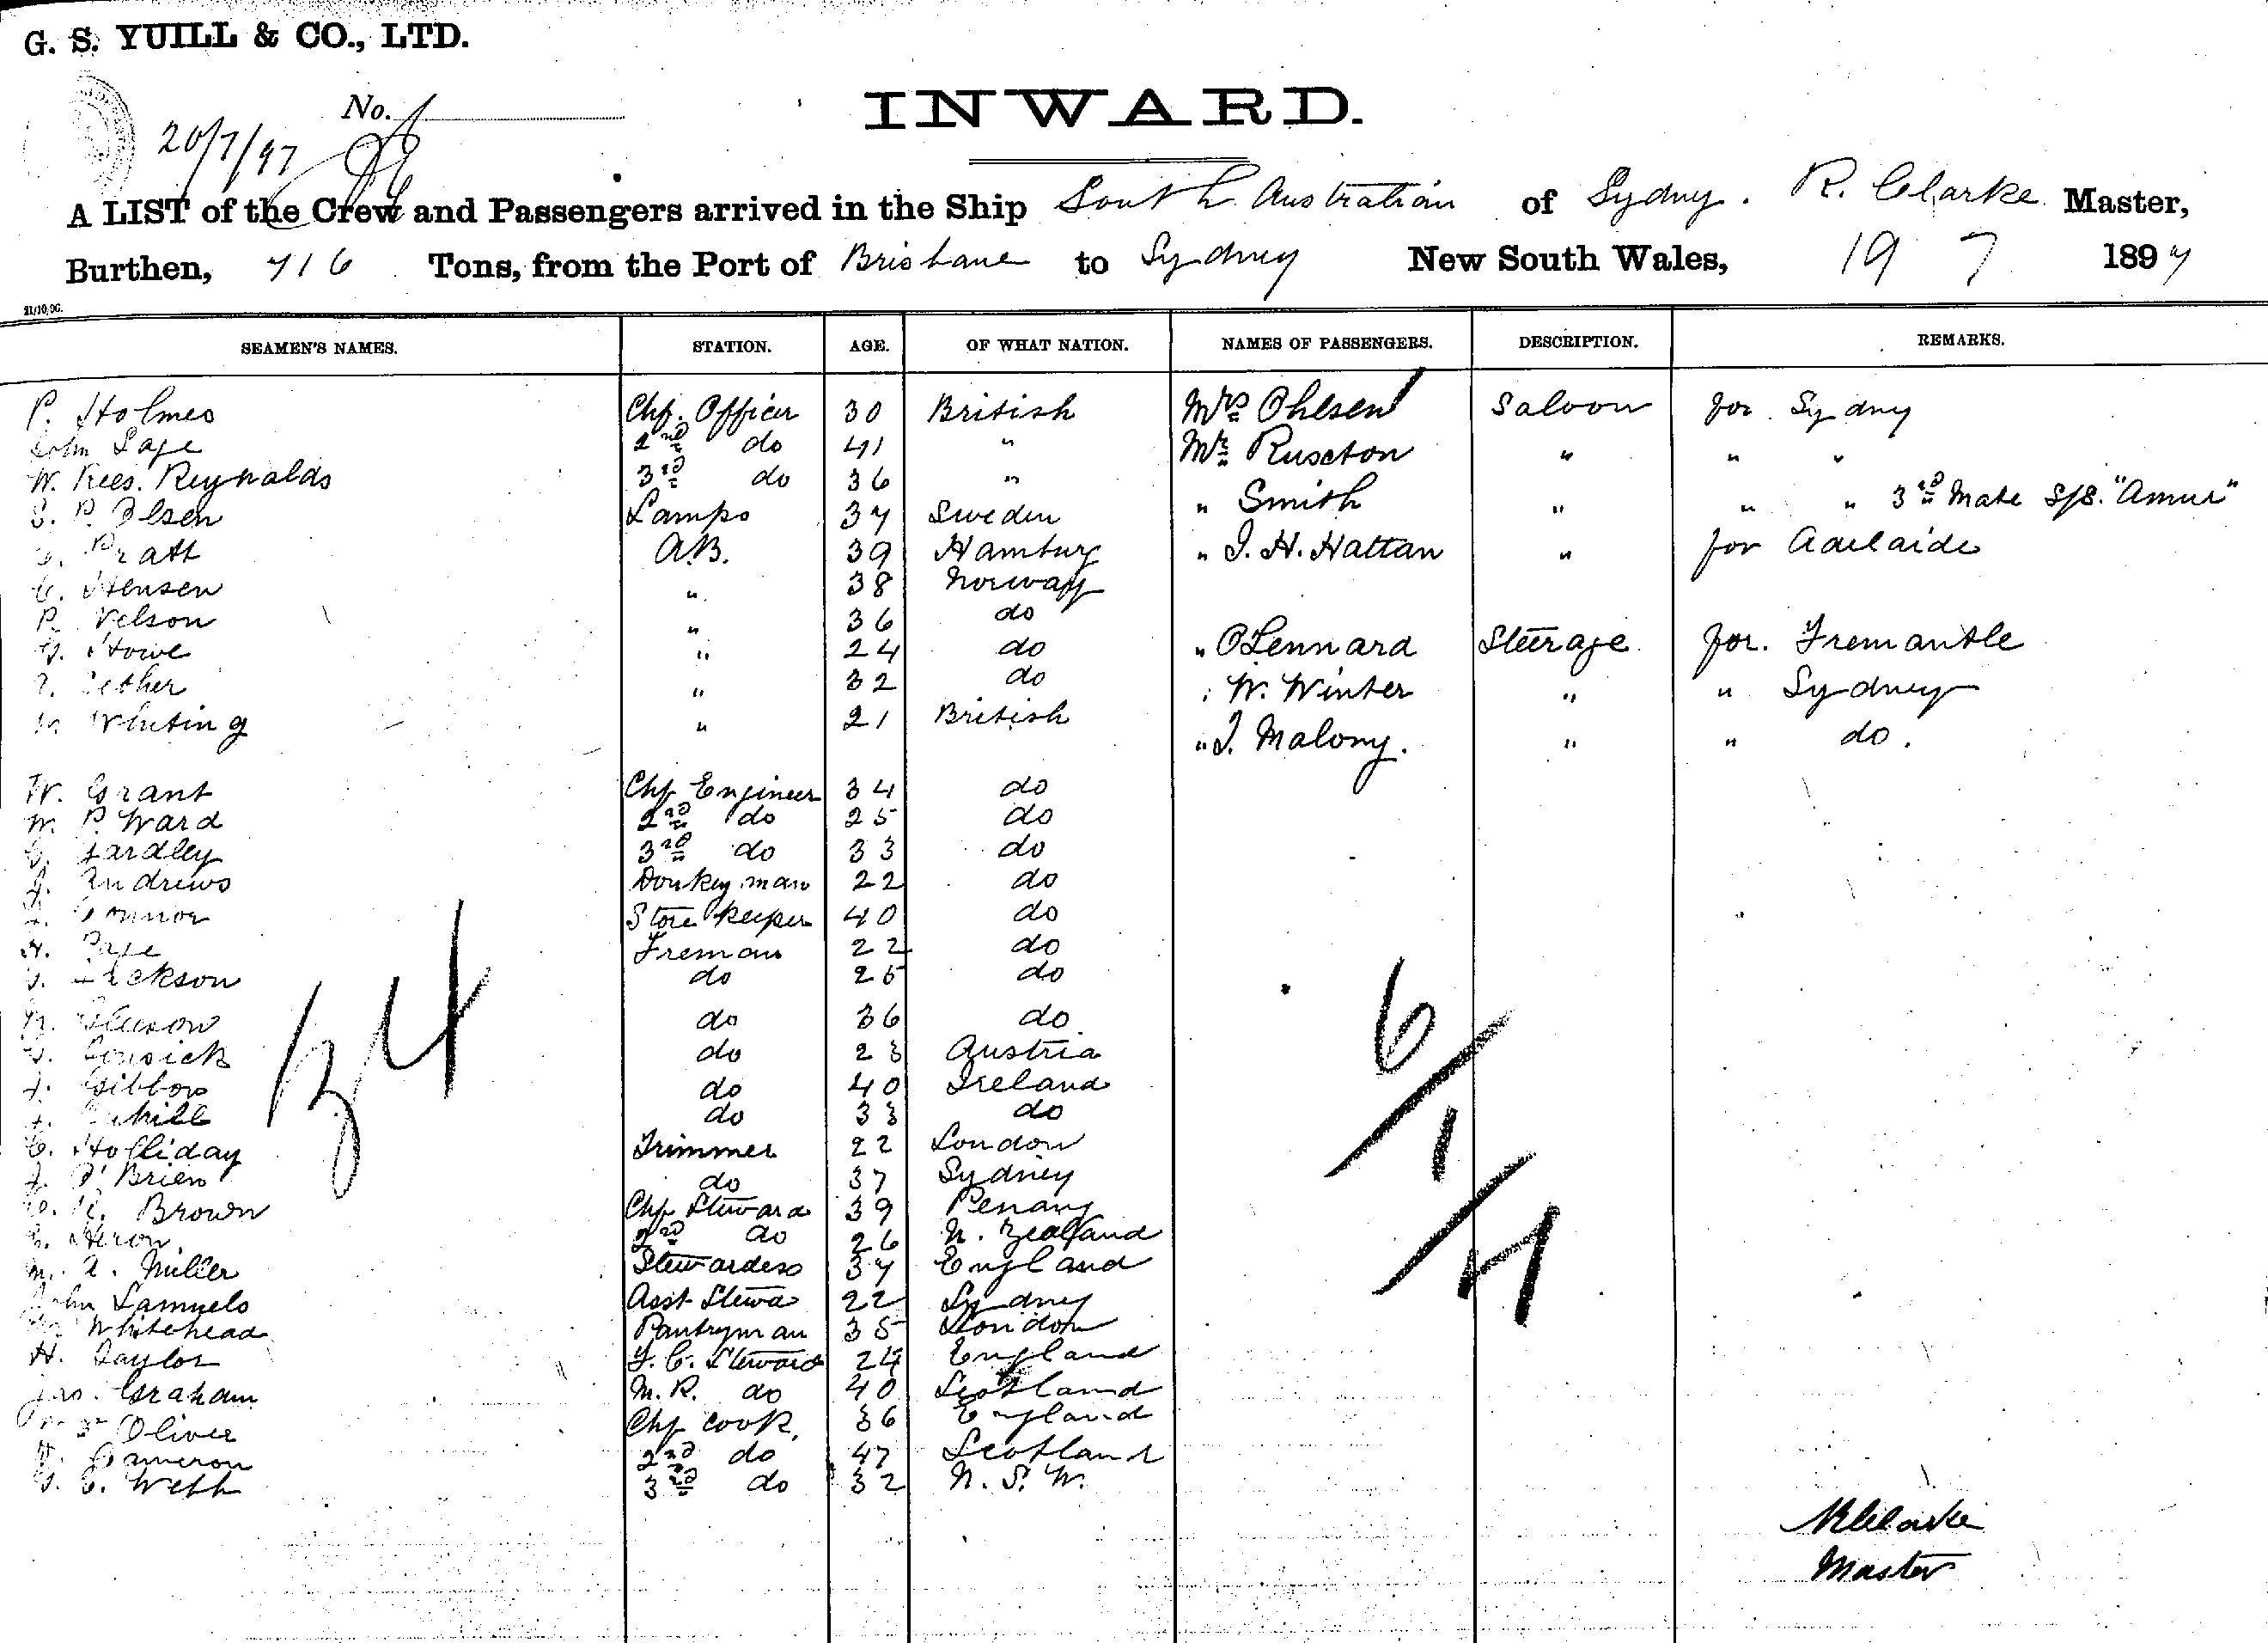 G. S. YUILL & CO., LTD.
No.
20/7/97
INWARD.
A LIST of the Crew and Passengers arrived in the Ship South Australian of Sydney. R. Clarke Master,
Burthen, 716 Tons, from the Port of Brisbane to Sydney New South Wales, 19 7 1897
21/10/96.
SEAMEN'S NAMES. STATION. AGE. OF WHAT NATION. NAMES OF PASSENGERS. DESCRIPTION. REMARKS.
P. Holmes Chf. Officer 30 British Mrs Ohlsen Saloon for Sydney
John Page 2nd do 41 " Mr Ruscton " " "
W. Rees. Reynolds 3rd do 36 " " Smith " " " 3rd Mate S/S. "Amur"
P. Olsen Lamps 37 Sweden
Pratt A.B. 39 Hamburg " J. H. Hattan " for Adelaide
C. Hensen " 38 Norway
P. Nelson " 36 do
Howe " 24 do " O Lennard Steerage for. Fremantle
" 32 do " W. Winter " " Sydney
Whiting " 21 British
" J. Malony. " " do.
W. Grant Chf Engineer 34 do
W. P. Ward 2nd do 25 do
Yardley 3rd do 33 do
Andrews Donkeyman 22 do
Connor Store Keeper 40 do
H. Page Fireman 22 do
Jackson do 25 do
Gleeson do 36 do
do 23 Austria
Gibbon do 40 Ireland
Cahill do 33 do
C. Holliday Trimmer 22 London
J. O'Brien do 37 Sydney
Brown Chf Steward 39 Penang
Heron 2nd do 26 N. Zealand
M. A. Miller Stewardess 37 England
John Samuels Asst Stewd 22 Sydney
Whitehead Pantryman 35 London
H. Taylor F. C. Steward 24 England
Jas. Graham M. R. do 40 Scotland
Oliver Chf cook, 36 England
Cameron 2nd do 47 Scotland
G. C. Webb 3rd do 32 N. S. W.
34
6/1/7
R Clarke
Master